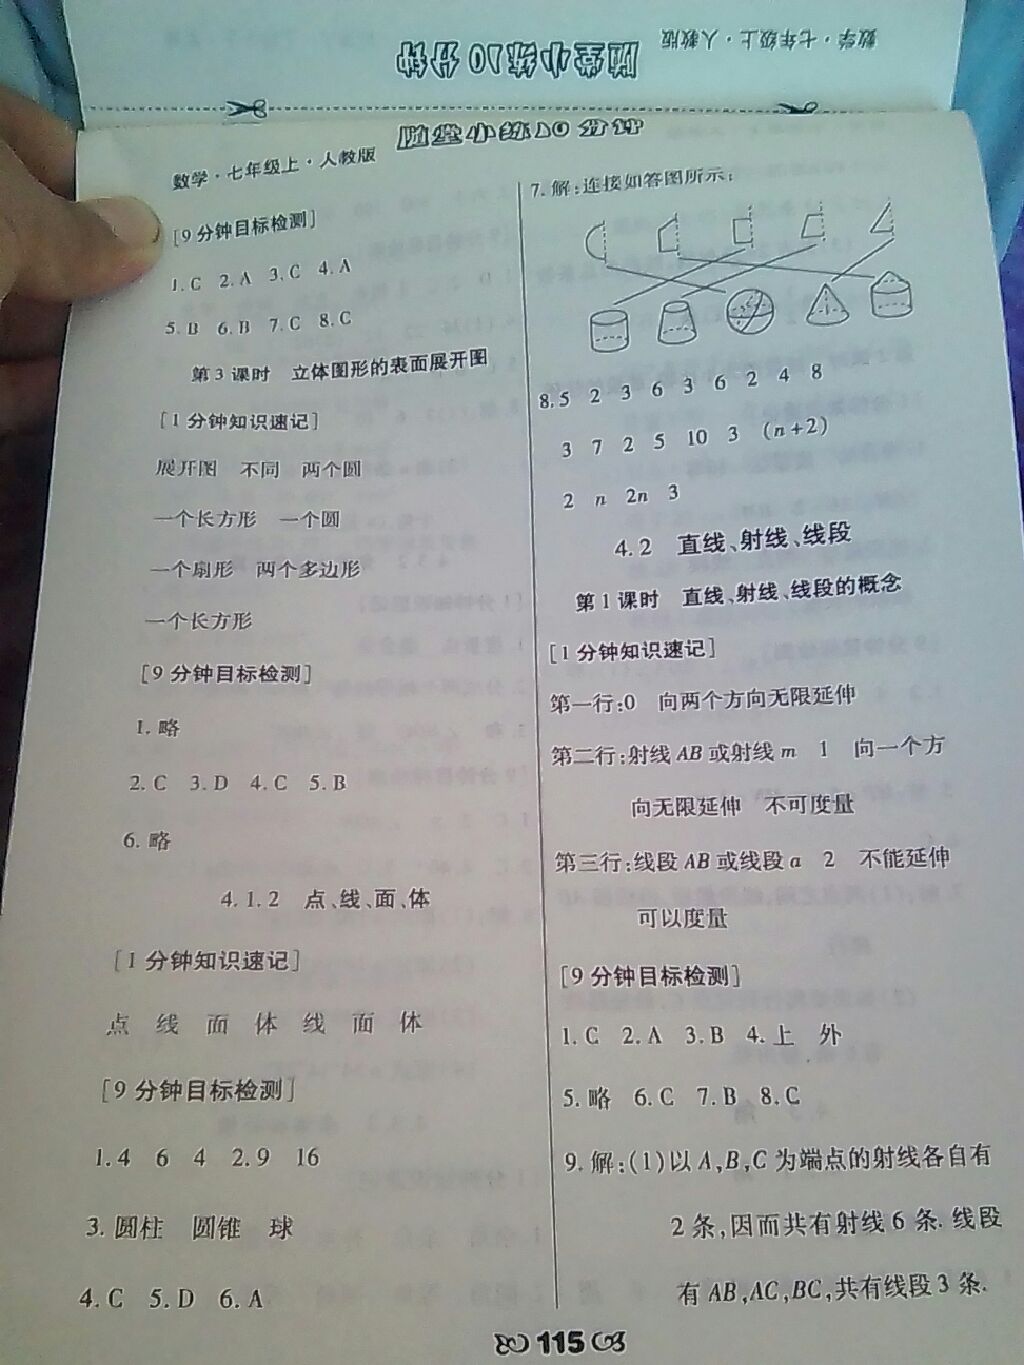 数学·七年级上·人教版
随堂小练10分钟
随堂小练10分钟
数学·七年级上·人教版
[9分钟目标检测]
1.C 2.A 3.C 4.A
5.B 6.B 7.C 8.C
第3课时 立体图形的表面展开图
[1分钟知识速记]
展开图 不同 两个圆
一个长方形 一个圆
一个扇形 两个多边形
一个长方形
[9分钟目标检测]
1.略
2.C 3.D 4.C 5.B
6.略
4.1.2 点、线、面、体
[1分钟知识速记]
点 线 面 体 线 面 体
[9分钟目标检测]
1.4 6 4 2.9 16
3.圆柱 圆锥 球
4.C 5.D 6.A
7.解:连接如答图所示:
8.5 2 3 6 3 6 2 4 8
3 7 2 5 10 3 (n+2)
2 n 2n 3
4.2 直线、射线、线段
第1课时 直线、射线、线段的概念
[1分钟知识速记]
第一行:0 向两个方向无限延伸
第二行:射线AB或射线m 1 向一个方
向无限延伸 不可度量
第三行:线段AB或线段a 2 不能延伸
可以度量
[9分钟目标检测]
1.C 2.A 3.B 4.上 外
5.略 6.C 7.B 8.C
9.解:(1)以A,B,C为端点的射线各自有
2条,因而共有射线6条.线段
有AB,AC,BC,共有线段3条.
115